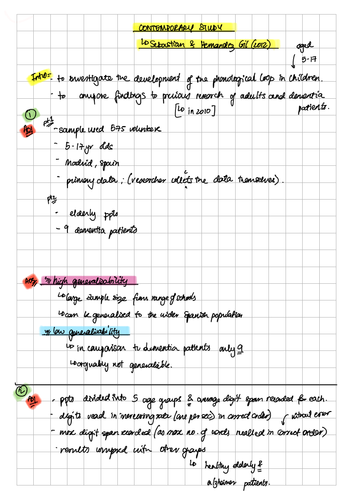 CONTEMPORARY STUDY
↳ Sebastian & Hernandez Gil (2012)
aged
5-17
Intro: - to investigate the development of the phonological loop in children.
- to compare findings to previous research of adults and dementia patients.
[↳ in 2010]
①
AO1 pt1 - sample used 575 volunteers
- 5-17 yr olds
- Madrid, Spain
- primary data; (researcher collects the data themselves).
pt2
- elderly ppts
- 9 dementia patients
→ high generalisability
↳ large sample size from range of schools
↳ can be generalised to the wider Spanish population
→ low generalisability
↳ in comparison to dementia patients only 9
↳ arguably not generalisable.
②
AO1 - ppts divided into 5 age groups & average digit span recorded for each.
- digits read in increasing rate (one per sec) in correct order)
without error
- max digit span recorded (as max no. of words recalled in correct order)
- results compared with other groups
↳ healthy elderly &
alzheimer patients.